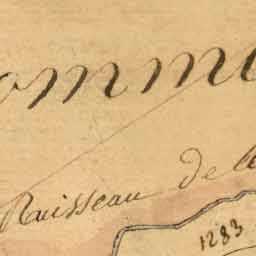 omm
Ruisseau de
1283